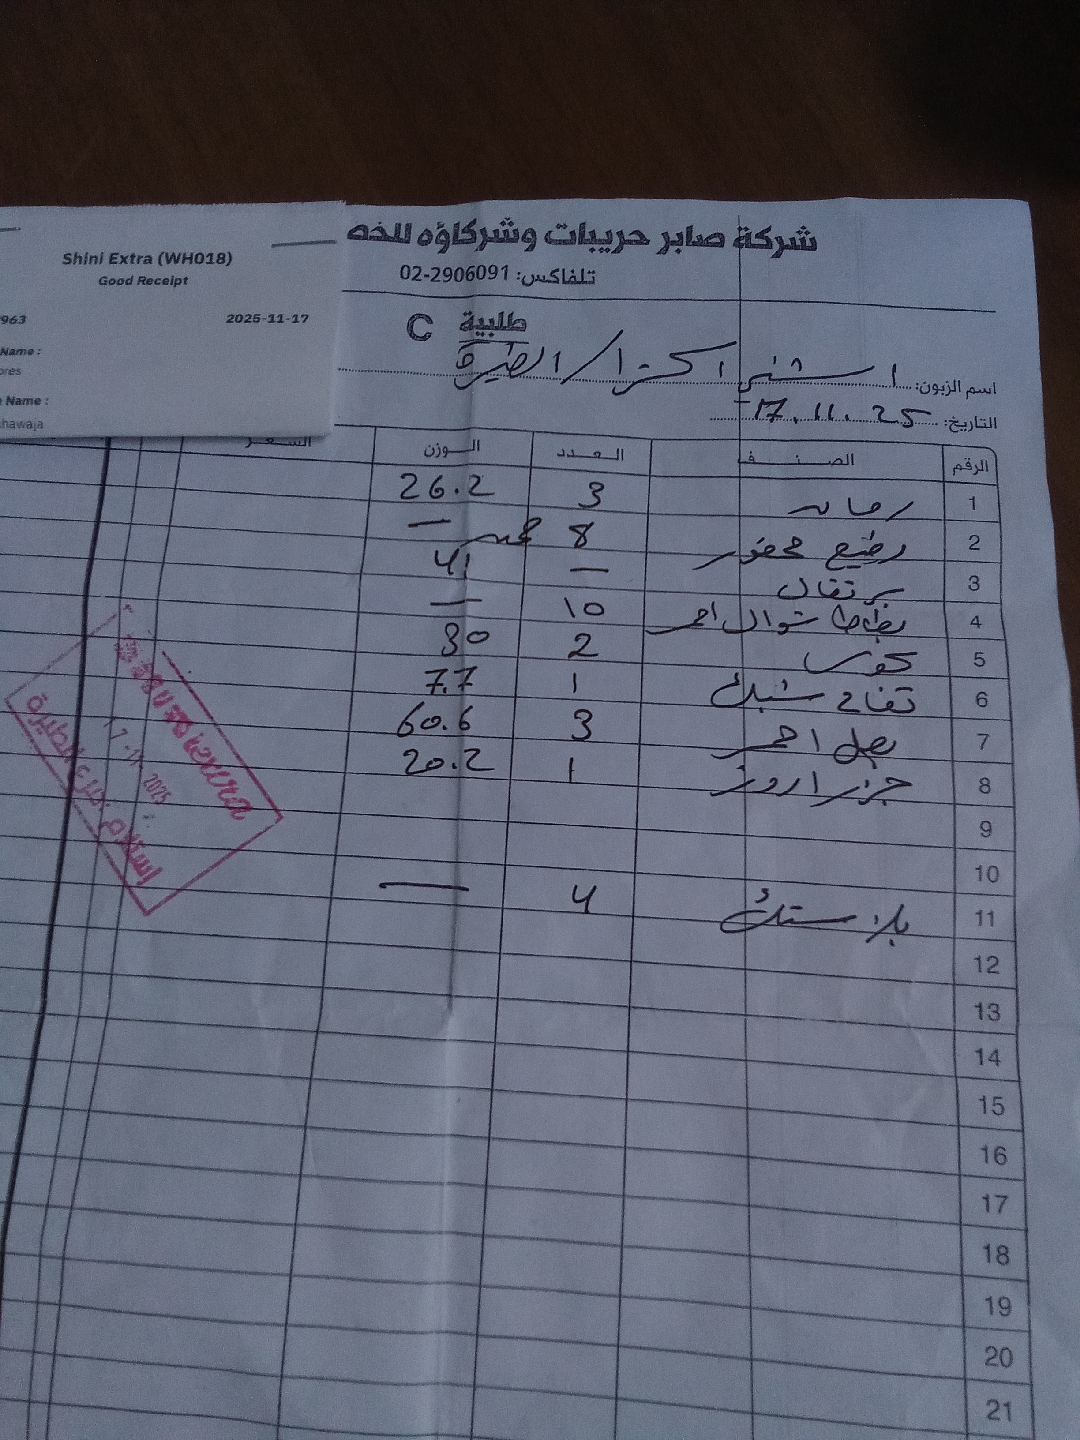 شركة صابر حريبات وشركاؤه للخض
تلفاكس: 02-2906091
Shini Extra (WH018)
Good Receipt
963
2025-11-17
Name :
ores
Name :
hawaja
طلبية C
اسم الزبون: شني اكسترا / الطيرة
التاريخ: 17.11.25
الرقم الصنف العدد الوزن السعر
1 رمان 3 26.2
2 8 —
3 برتقال — 41
4 بطاطا شوال احمر 10 —
5 كوسا 2 30
6 تفاح 1 7.7
7 بصل احمر 3 60.6
8 جزر اروز 1 20.2
9
10
11 بلاستك 4 —
12
13
14
15
16
17
18
19
20
21
extra
2025
استلام فرع الطيرة